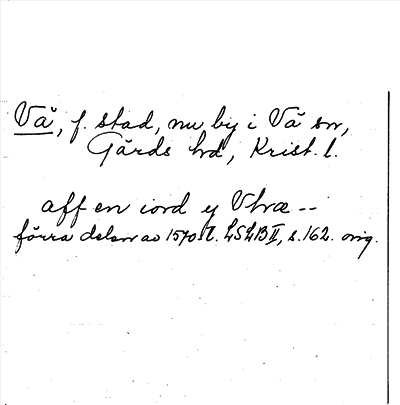 Vä, f. stad, nu by i Vä sn,
Gärds hd, Krist. l.
aff en iord y Vhræ --
förra delen av 1570 t. LSLB II, s. 162. orig.